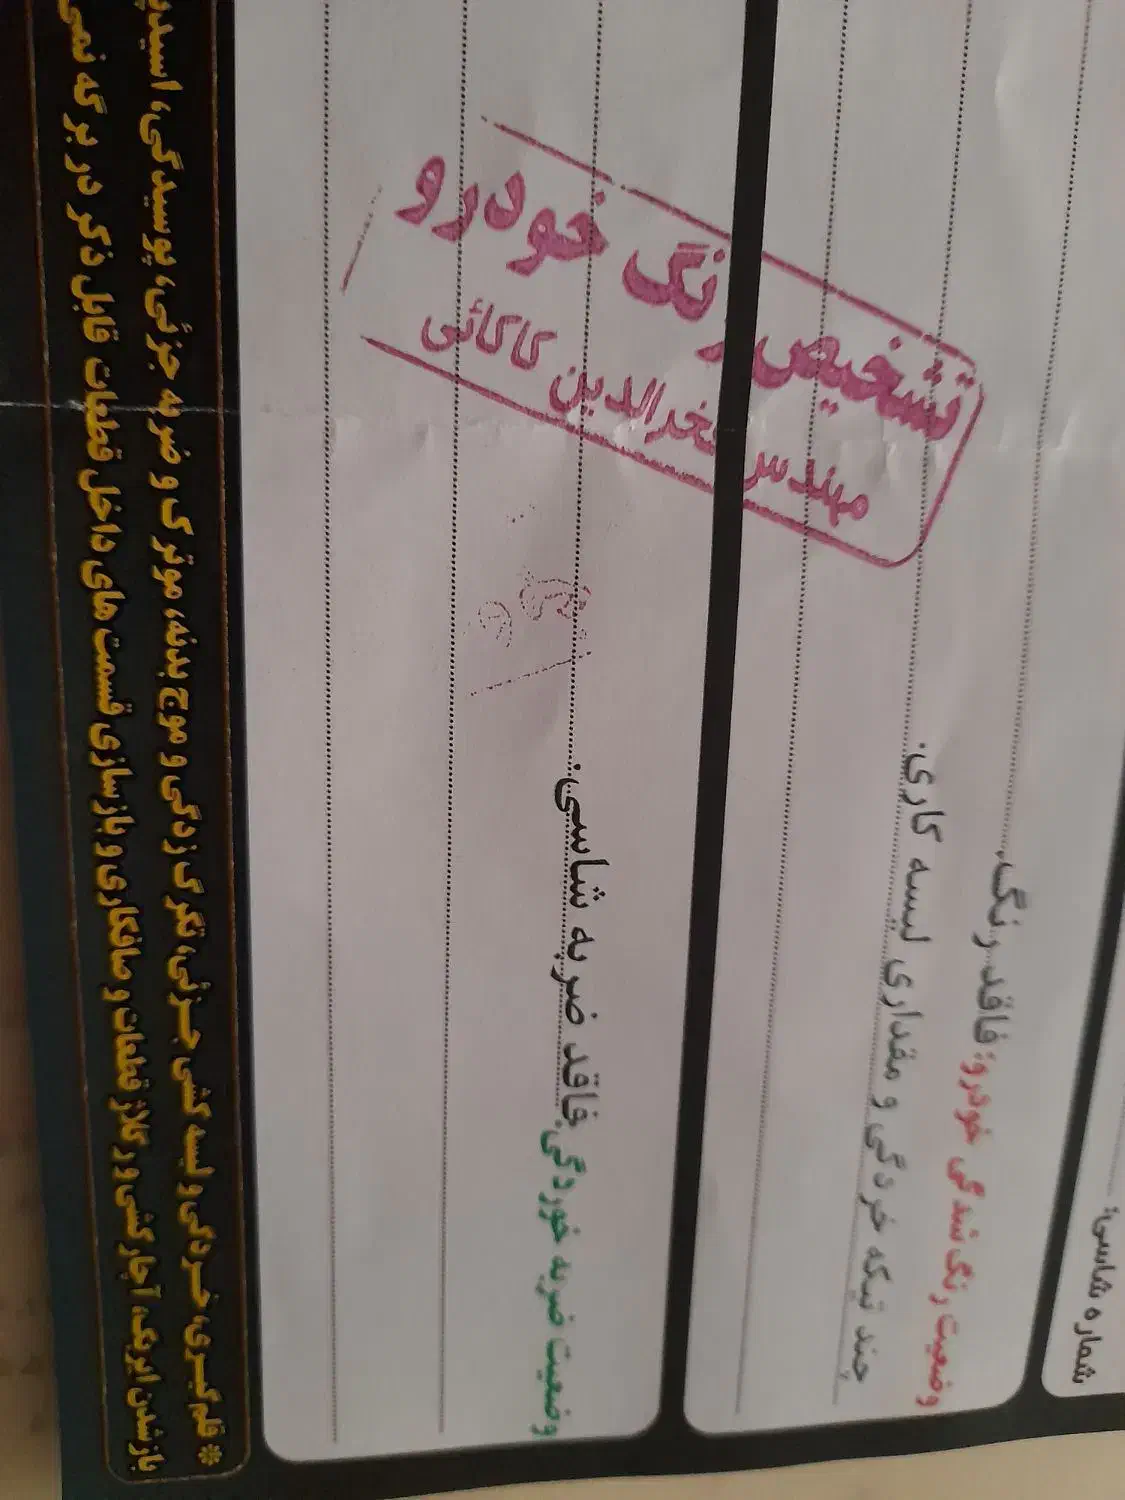 شماره شاسی:
وضعیت رنگ شدگی خودرو: فاقد رنگ.
چند تیکه خردگی و مقداری لیسه کاری.
تشخیص رنگ خودرو
مهندس فخرالدین کاکائی
وضعیت ضربه خوردگی: فاقد ضربه شاسی.
* قلم گیری، خردگی و لیسه کشی جزئی، تگرگ زدگی و موج بدنه، موترک و ضربه جزئی، پوسیدگی، اسید
باز شدن ایربگ، آچار کشی ور گلاژ قطعات و صافکاری و بازسازی قسمت های داخل قطعات قابل ذکر در برگه نمی